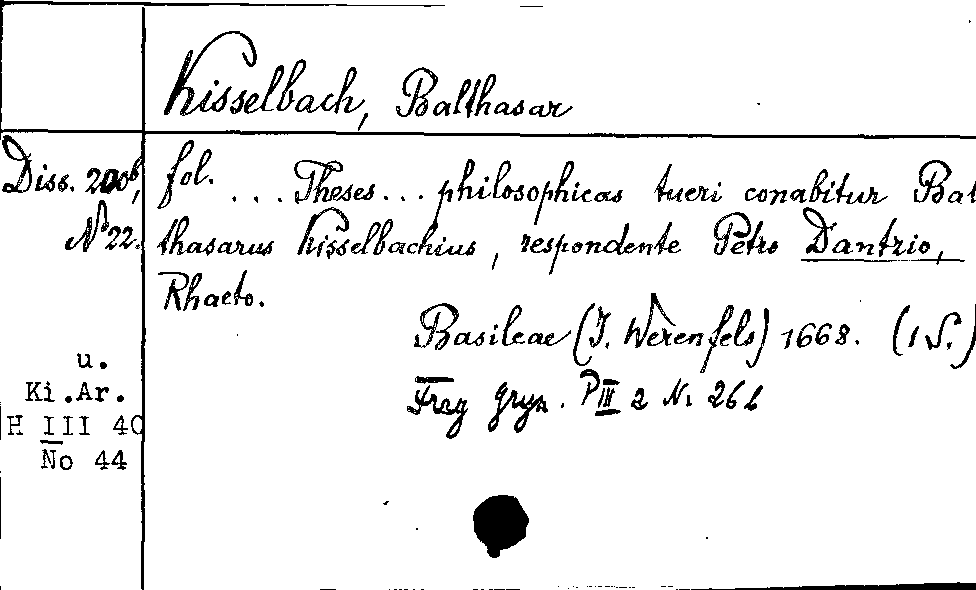 Kisselbach, Balthasar
Diss. 200b,
No 22.
fol. ... Theses... philosophicas tueri conabitur Bal
thasarus Kisselbachius, respondente Petro Dantrio,
Rhaeto.
Basileae (J. Werenfels) 1668. (1 S.)
Frag gryn. P III 2 No 26b
u.
Ki.Ar.
H III 40
No 44